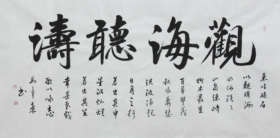 觀海聽濤
東臨碣石
以觀滄海
水何澹澹
山島竦峙
樹木叢生
百草豐茂
秋風蕭瑟
洪波涌起
日月之行
若出其中
星漢燦爛
若出其里
幸甚至哉
歌以詠志